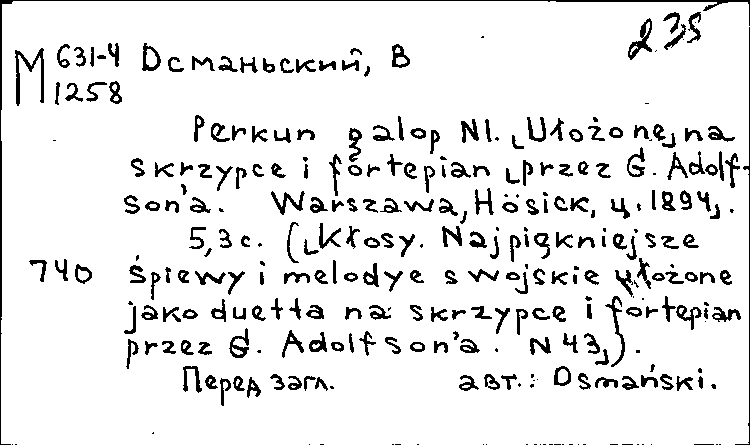 235
М 631-4 Османьский, В
1258
Perkun galop N1. [Ułożone] na
skrzypce i fortepian [przez G. Adolf-
son'a. Warszawa, Hösick, ц. 1894].
5,3 с. ([Kłosy. Najpiękniejsze
740 śpiewy i melodye swojskie ułożone
jako duetta na skrzypce i fortepian
przez G. Adolfson'a. N 43]).
Перед загл. авт.: Osmański.